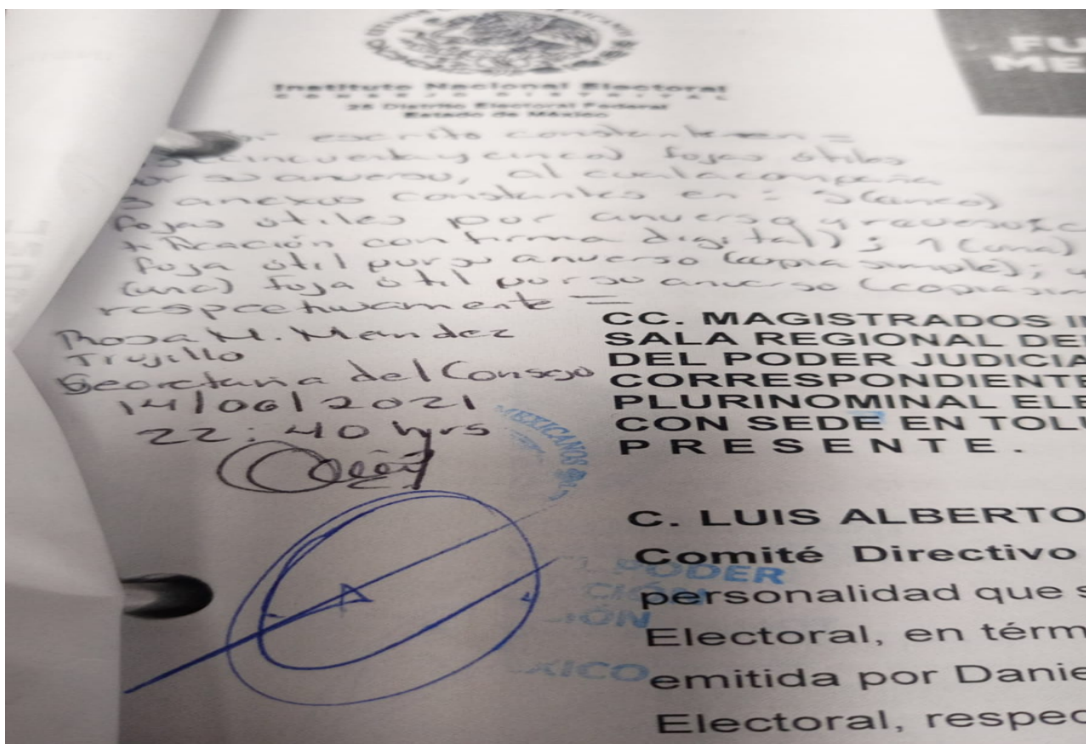 FU
ME
Instituto Nacional Electoral
CONSEJO DISTRITAL
28 Distrito Electoral Federal
Estado de México
escrito constante en =
cincuenta y cinco) fojas útiles
por su anverso, al cual acompaña
anexos constantes en : 5 (cinco)
fojas útiles por anverso y reverso
tificación con firma digital); 1 (una)
foja útil por su anverso (copia simple);
(una) foja útil por su anverso (copia sim
respectivamente =
Rosa M. Mendez
Trujillo
Secretaria del Consejo
14/06/2021
22:40 hrs
CC. MAGISTRADOS
SALA REGIONAL DE
DEL PODER JUDICIA
CORRESPONDIENTE
PLURINOMINAL ELE
CON SEDE EN TOLU
PRESENTE.
MEXICANOS
C. LUIS ALBERTO
Comité Directivo
PODER
personalidad que s
Electoral, en térm
XICO
emitida por Danie
Electoral, respec